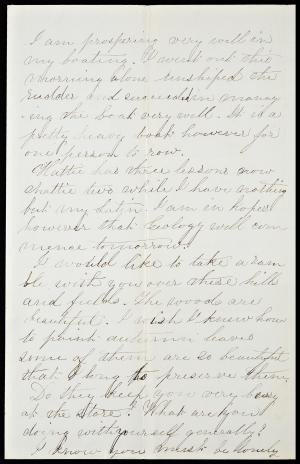 I am prospering very well in
my boating. I went out this
morning alone unshiped the
rudder and succeeded in manag
-ing the boat very well. It is a
pretty heavy boat however for
one person to row.
Hattie has three lessons now
Mattie two while I have nothing
but my Latin. I am in hopes
however that Geology will com
mence tomorrow.
I would like to take a ram
ble with you over these hills
and fields. The woods are
beautiful. I wish I knew how
to paint autumn leaves
some of them are so beautiful
that I long to preserve them.
Do they keep you very busy
at the Store? What are you
doing with yourself generally?
I know you must be lonely